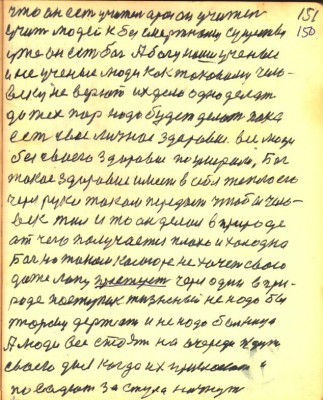 что он ест учител а раз он учител 151
учит людей к бессмертному существу 150
уже он ест бог А богу наши ученые
и не ученые люди как таковому чело-
веку не верют их дело одно делат
до тех пор надо будет делат пока
ест свое личное здоровие. все люди
без своего здоровие поумирали, Бог
такое здоровие имеет в себя тепло его
чере руки током передает чтоб чело-
век жил и то он делал в природе
от чего получается плохо и холодно
Бог но таком
даже чере один в при-
роде поступок жизненый не надо бы
тюрому держат и не надо болница
А люди все стоят на очереди ждут
своего дня когда их и
посадют за стула начнут